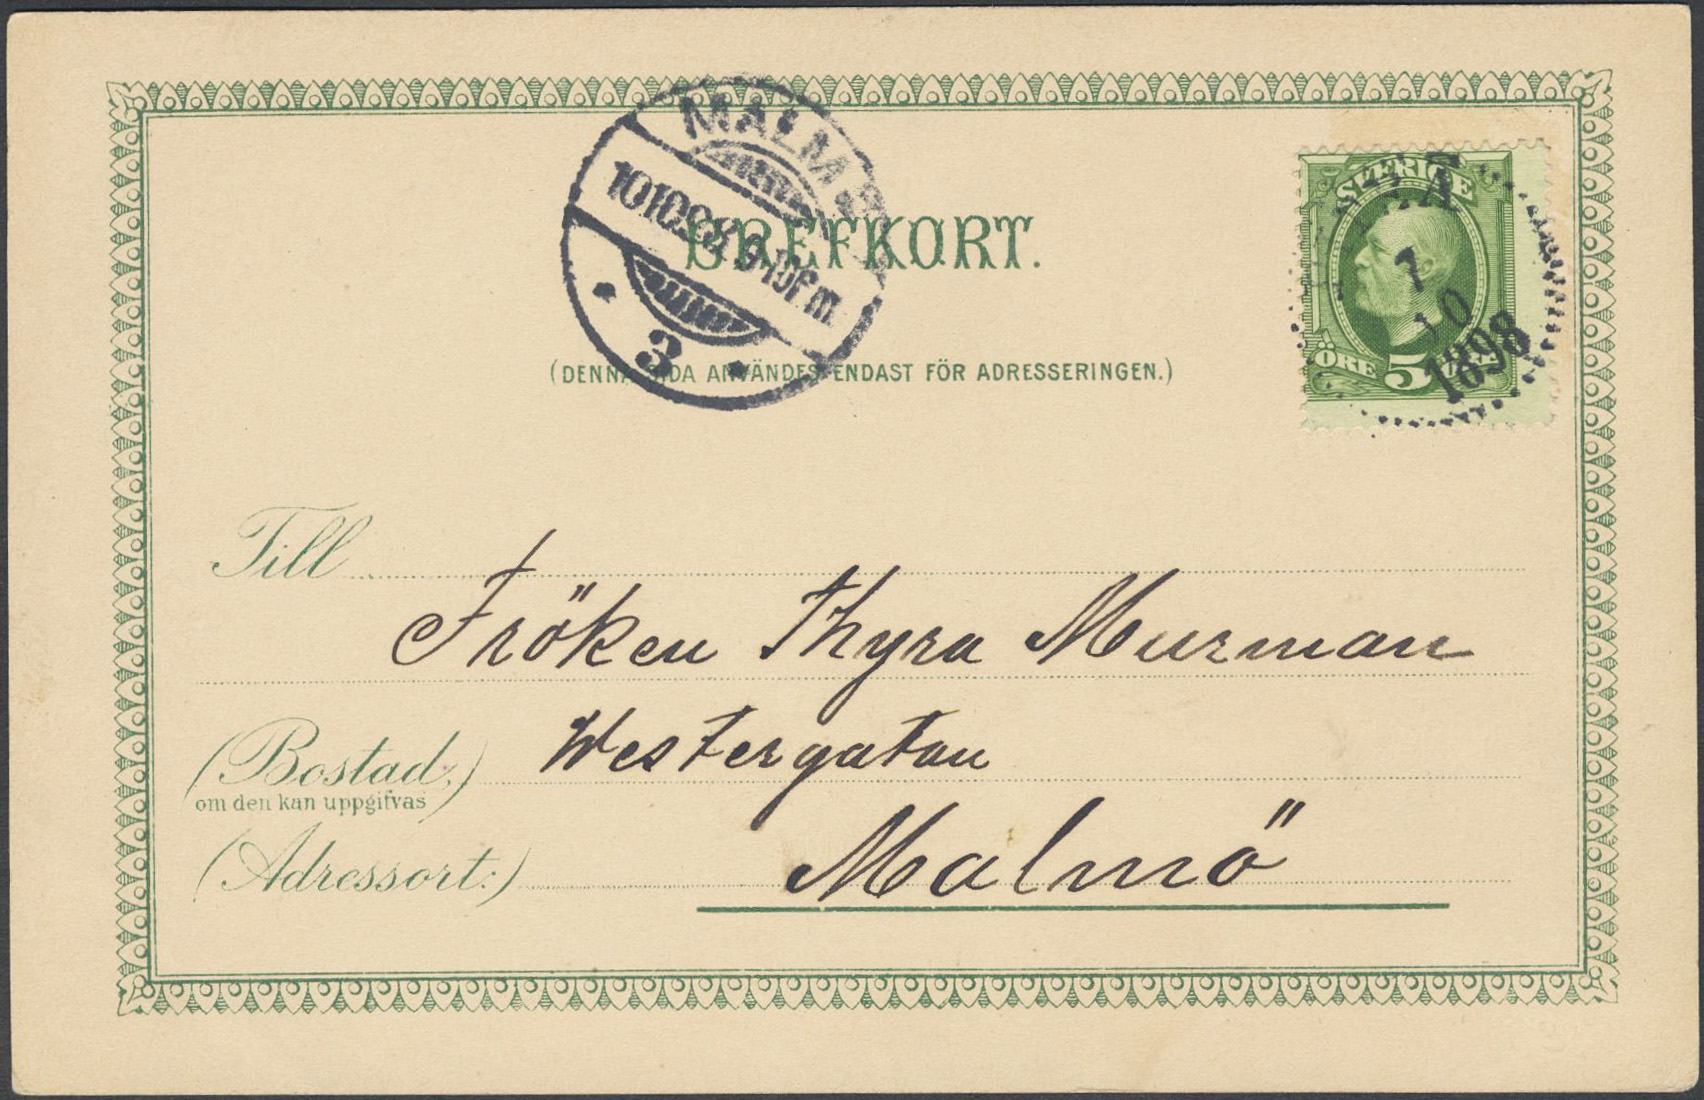 MALMÖ
101098 9-10 F m
3
BREFKORT.
(DENNA SIDA ANVÄNDES ENDAST FÖR ADRESSERINGEN.)
SVERIGE
ÖRE 5
7
10
1898
Till
Fröken Thyra Murman
(Bostad:) Westergatan
om den kan uppgifvas
(Adressort:) Malmö